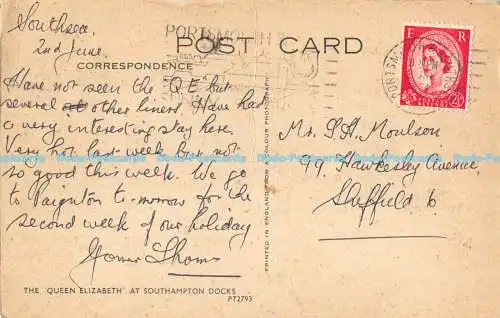 PORTSMOUTH
POST CARD
CORRESPONDENCE
Southsea
2nd June.
Have not seen the Q E but
several at other liners. Have had
a very interesting stay here.
Very hot last week but not
so good this week. We go
to Paignton to-morrow for the
second week of our holiday
THE "QUEEN ELIZABETH" AT SOUTHAMPTON DOCKS
PT2793
PRINTED IN ENGLAND
COLOUR PHOTOGRAPH
E R
POSTAGE REVENUE
2½D
Mr. S.H. Moulson
99, Hawksley Avenue,
Sheffield 6